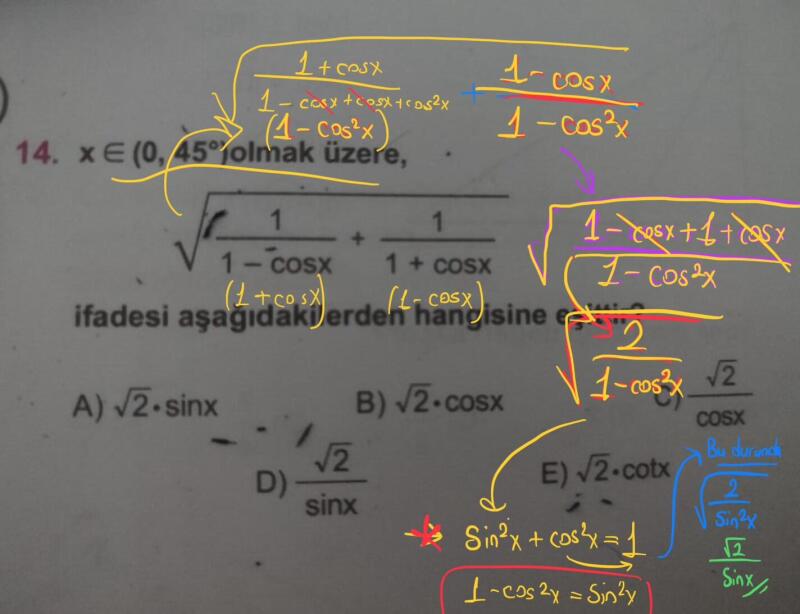 1 + cosx / 1 - cosx + cosx + cos²x
(1 - cos²x)
+ 1 - cosx / 1 - cos²x
14. x ∈ (0, 45°) olmak üzere,
√(1 / (1 - cosx) + 1 / (1 + cosx))
(1 + cosx) (1 - cosx)
√((1 - cosx + 1 + cosx) / (1 - cos²x))
ifadesi aşağıdakilerden hangisine eşittir?
√(2 / (1 - cos²x))
A) √2·sinx B) √2·cosx C) √2 / cosx
D) √2 / sinx E) √2·cotx
Bu durumda
√(2 / Sin²x)
√2 / Sinx
Sin²x + cos²x = 1
1 - cos²x = Sin²x